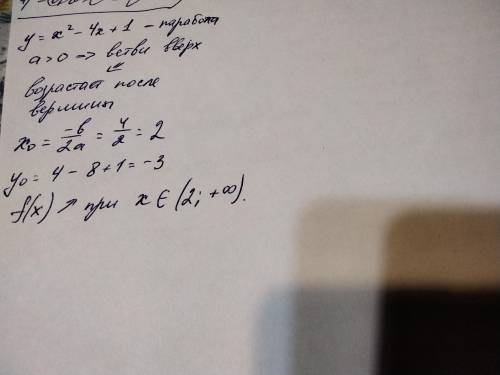 y = x² - 4x + 1 - парабола
a > 0 → ветви вверх
⇙
возрастает после
вершины
x₀ = -b/2a = 4/2 = 2
y₀ = 4 - 8 + 1 = -3
f(x) ↗ при x ∈ (2; +∞).